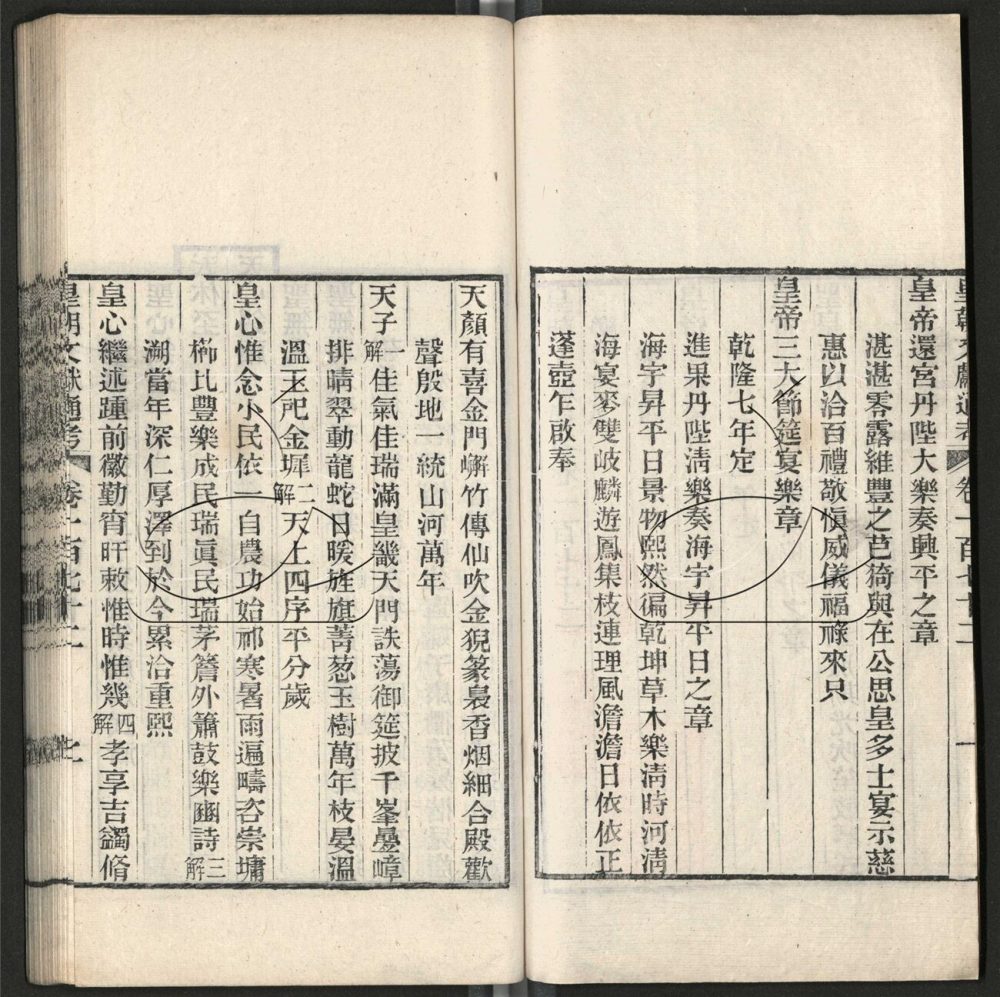 皇朝文獻通考 卷一百七十二 一
皇帝還宮丹陛大樂奏興平之章
湛湛零露維豐之芑猗與在公思皇多士宴示慈
惠以洽百禮敬慎威儀福祿來只
皇帝三大節筵宴樂章
乾隆七年定
進果丹陛清樂奏海宇昇平日之章
海宇昇平日景物熙然徧乾坤草木樂清時河清
海宴麥雙岐麟遊鳳集枝連理風澹澹日依依正
蓬壺乍啟奉
天顏有喜金門嶰竹傳仙吹金猊篆裊香烟細合殿歡
聲殷地一統山河萬年
天子一解佳氣佳瑞滿皇畿天門詄蕩御筵披千峯疊嶂
排晴翠動龍蛇日暖旌旗菁葱玉樹萬年枝晏溫
溫玉戺金墀二解天上四序平分歲
皇心惟念小民依一自農功始祁寒暑雨遍疇咨崇墉
櫛比豐樂成民瑞眞民瑞茅簷外簫鼓樂豳詩三解
溯當年深仁厚澤到於今累洽重熙
皇心繼述踵前徽勤宵旰敕惟時惟幾四解孝享吉蠲脩
皇朝文獻通考 卷一百七十二